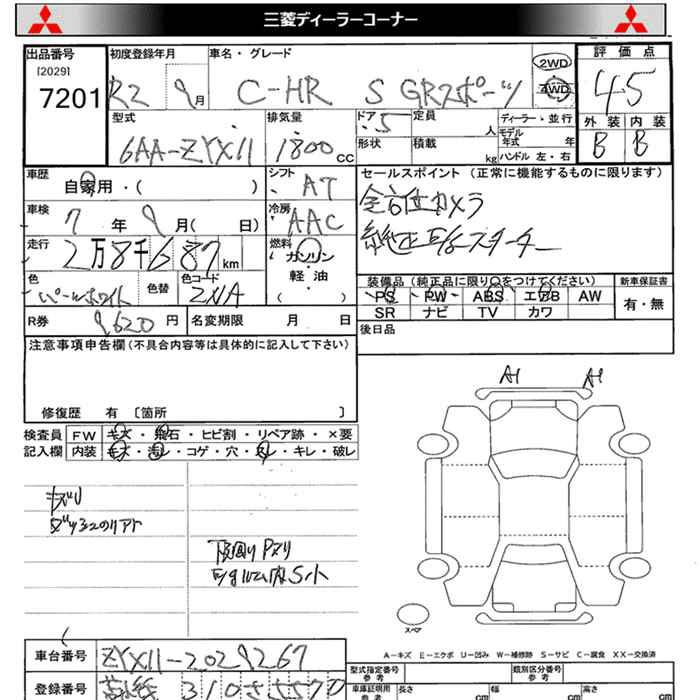 三菱ディーラーコーナー
出品番号
[2029]
7201
初度登録年月
R2 9月
車名・グレード
C-HR S GRスポーツ
2WD
4WD
評価点
4.5
外装 内装
B B
型式
6AA-ZYX11
排気量
1800cc
ドア 5
定員 人
ディーラー・並行
形状
積載 kg
モデル年式 年
ハンドル 左・右
車歴
自家用・( )
シフト AT
セールスポイント (正常に機能するものに限ります)
全方位カメラ
純正E/gスターター
車検
7年9月( 日)
冷房 AAC
走行
2万8千687km
燃料
ガソリン
軽・油
( )
色
パールホワイト
色替
色コード
ZNA
装備品(純正品に限り○をつけてください)
新車保証書
PS PW ABS エアB AW
有・無
SR ナビ TV カワ
R券 9620円
名変期限 月 日
後日品
注意事項申告欄(不具合内容等は具体的に記入して下さい)
修復歴 有 〔箇所 〕
A1 A1
検査員記入欄
FW キズ・飛石・ヒビ割・リペア跡・×要
内装 キズ・汚レ・コゲ・穴・スレ・キレ・破レ
下廻りPサリ
スペア
A-キズ E-エクボ U-凹み W-補修跡 S-サビ C-腐食 XX-交換済
車台番号 ZYX11-2029267
登録番号
型式指定番号 参考
類別区分番号 参考
車庫証明用 参考
長さ cm
幅 cm
高さ cm